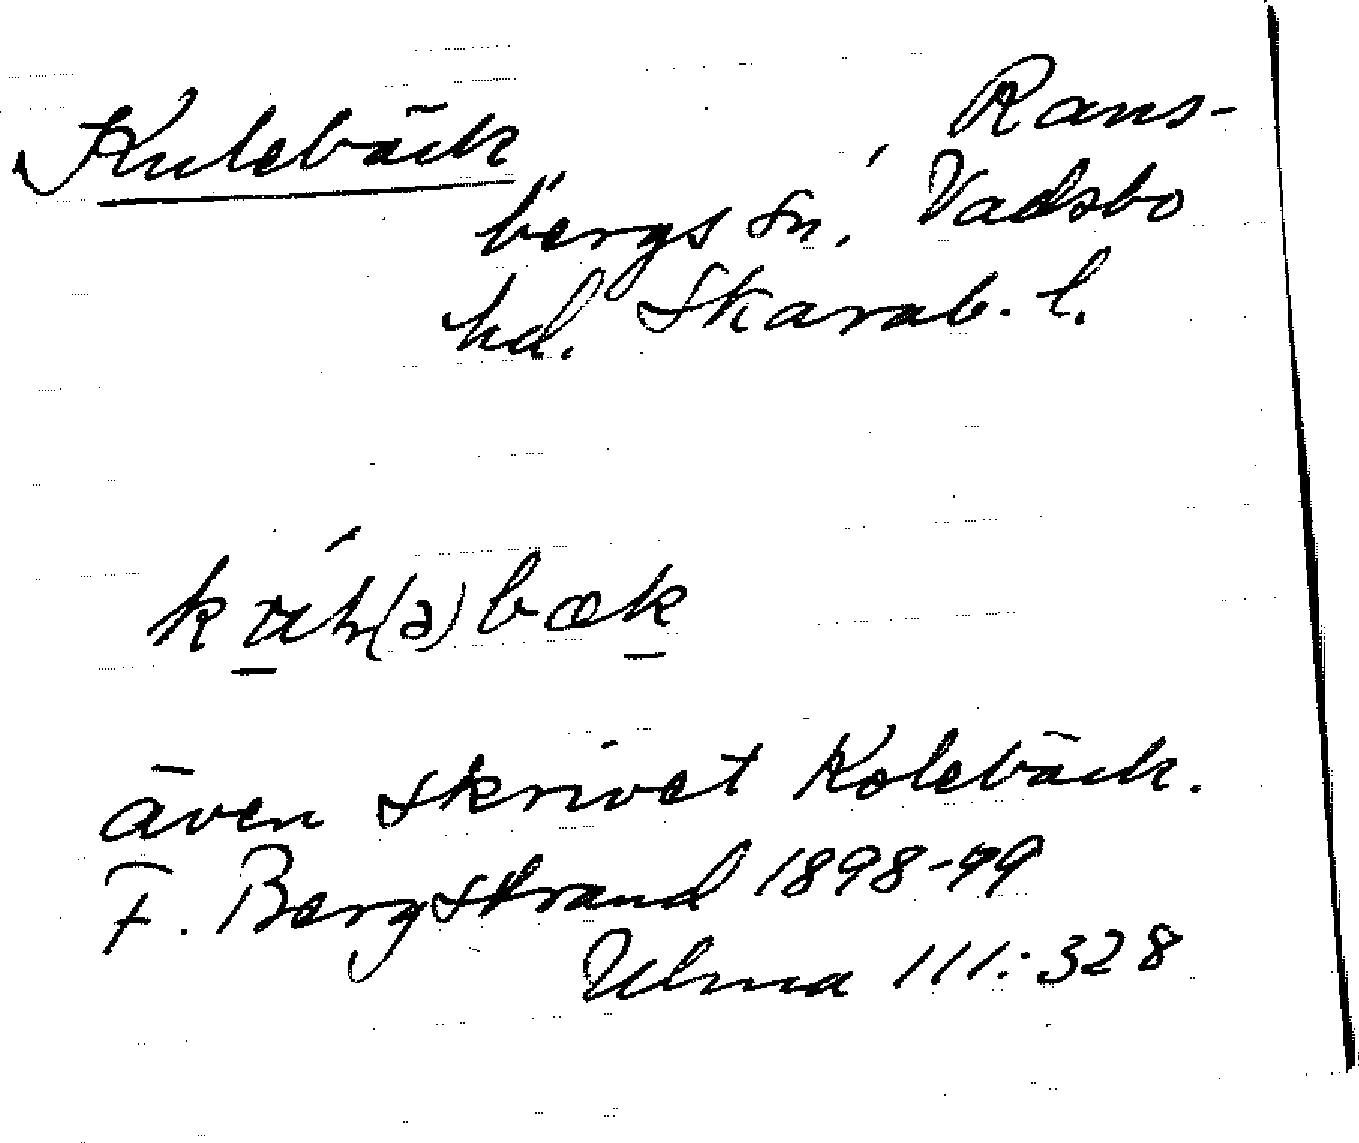 Kulebäck, Rans-
bergs sn, Vadsbo
hd. Skarab. l.
även skrivet Kolebäck.
F. Bergstrand 1898-99
Ulma 111:328